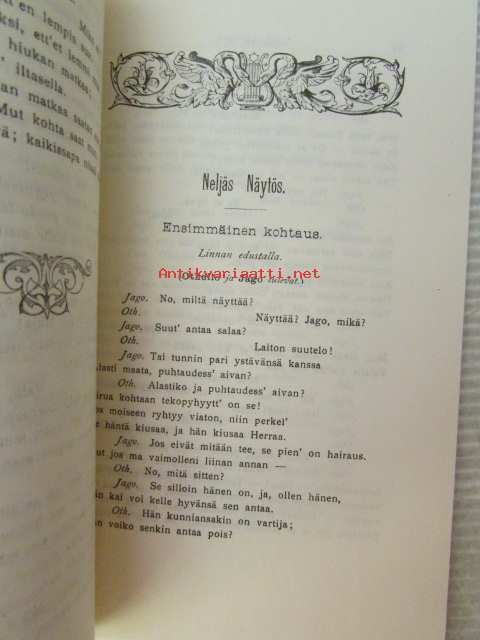 en lempis suo.
ksi, ett'et lemmi
hiukan matkaa;
iltasella.
an matkaa saatan
Mut kohta saat
ä; kaikissapa
Neljäs Näytös.
Ensimmäinen kohtaus.
Linnan edustalla.
Antikvariaatti.net
(Othello ja Jago tulevat.)
Jago. No, miltä näyttää?
Oth. Näyttää? Jago, mikä?
Jago. Suut' antaa salaa?
Oth. Laiton suutelo!
Jago. Tai tunnin pari ystävänsä kanssa
lasti maata, puhtaudess' aivan?
Oth. Alastiko ja puhtaudess' aivan?
irua kohtaan tekopyhyytt' on se!
pa moiseen ryhtyy viaton, niin perkel'
e häntä kiusaa, ja hän kiusaa Herraa.
Jago. Jos eivät mitään tee, se pien' on hairaus.
ut jos ma vaimolleni liinan annan —
Oth. No, mitä sitten?
Jago. Se silloin hänen on, ja, ollen hänen,
in kai voi kelle hyvänsä sen antaa.
Oth. Hän kunniansakin on vartija;
än voiko senkin antaa pois?